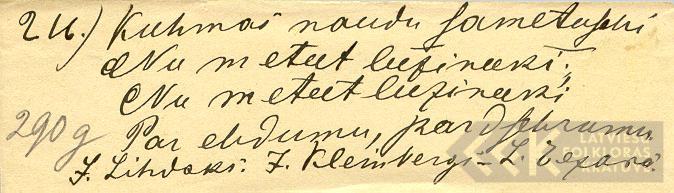 24.) Kuhmas naudu sametuschi
Nu meteet luzineeki;
Nu meteet luzineeki
290g Par ehdumu, par dsehrumu.
J. Lihdaks. J. Kleinbergs – L. Zeparā.
LATVIEŠU
FOLKLORAS
KRĀTUVE